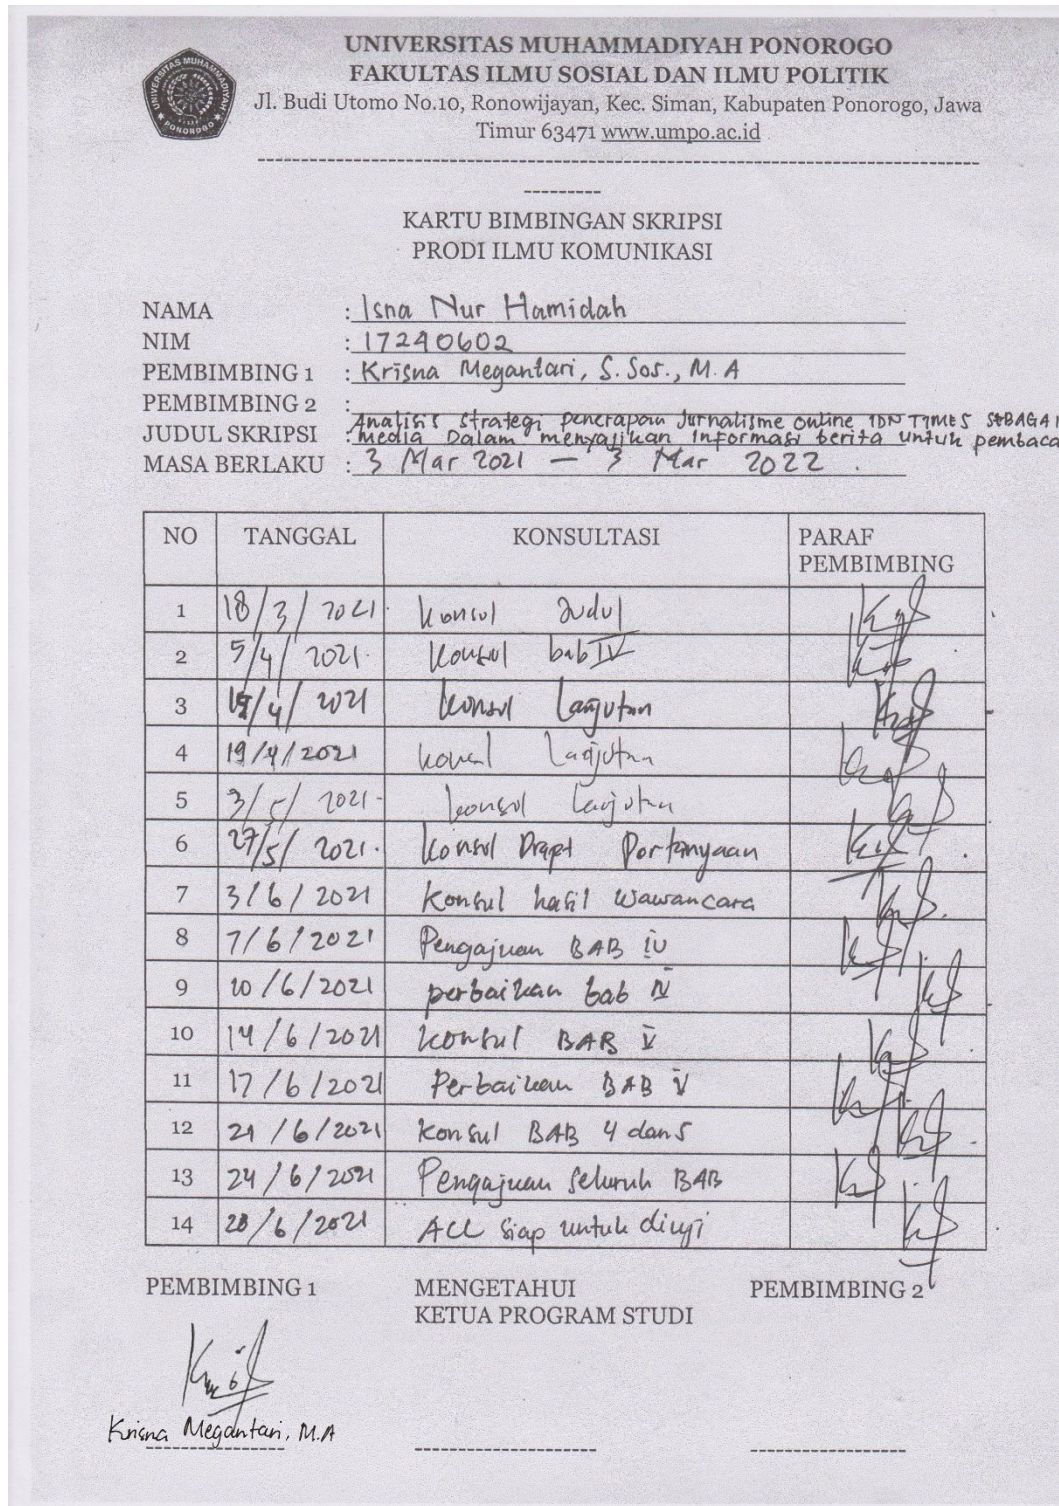 UNIVERSITAS MUHAMMADIYAH PONOROGO
FAKULTAS ILMU SOSIAL DAN ILMU POLITIK
Jl. Budi Utomo No.10, Ronowijayan, Kec. Siman, Kabupaten Ponorogo, Jawa
Timur 63471 www.umpo.ac.id
UNIVERSITAS MUHAMMADIYAH PONOROGO
KARTU BIMBINGAN SKRIPSI
PRODI ILMU KOMUNIKASI
NAMA : Isna Nur Hamidah
NIM : 17240602
PEMBIMBING 1 : Krisna Megantari, S.Sos., M.A
PEMBIMBING 2 :
Analisis Strategi penerapan Jurnalisme online IDN TIMES SEBAGAI
JUDUL SKRIPSI : media Dalam menyajikan Informasi berita untuk pembaca
MASA BERLAKU : 3 Mar 2021 — 3 Mar 2022 .
NO TANGGAL KONSULTASI PARAF
PEMBIMBING
1 18/3/2021 Konsul Judul
2 5/4/2021. Konsul bab IV
3 /4/2021 Konsul Lanjutan
4 19/4/2021 Konsul Lanjutan
5 3/5/2021 - Konsul Lanjutan
6 27/5/2021. Konsul Drapt Pertanyaan
7 3/6/2021 Konsul hasil wawancara
8 7/6/2021 Pengajuan BAB IV
9 10/6/2021 perbaikan bab IV
10 14/6/2021 Konsul BAB V
11 17/6/2021 Perbaikan BAB V
12 21/6/2021 Konsul BAB 4 dan 5
13 24/6/2021 Pengajuan Seluruh BAB
14 28/6/2021 ACC siap untuk diuji
PEMBIMBING 1 MENGETAHUI PEMBIMBING 2
KETUA PROGRAM STUDI
Krisna Megantari, M.A